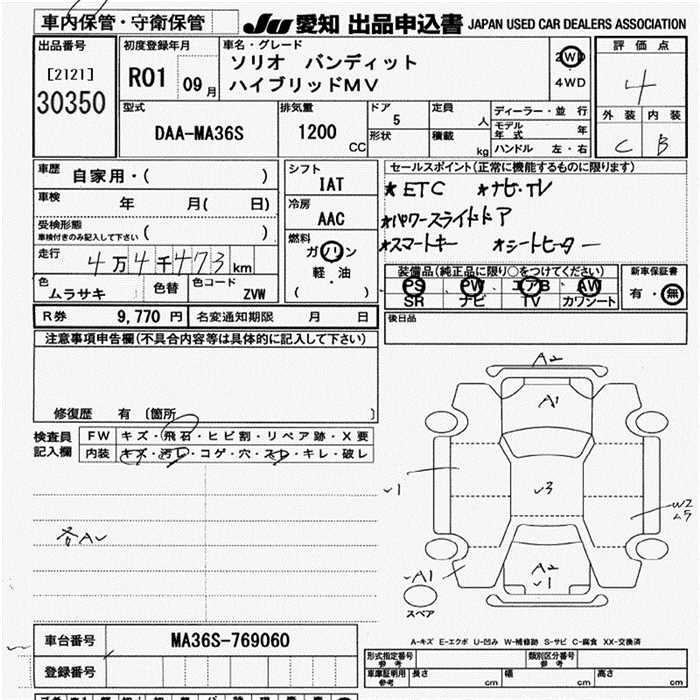 車内保管・守衛保管
JU 愛知 出品申込書 JAPAN USED CAR DEALERS ASSOCIATION
出品番号
[2121]
30350
初度登録年月
R01 09月
車名・グレード
ソリオ バンディット
ハイブリッドMV
2WD
4WD
評価点
4
外装 内装
C B
型式
DAA-MA36S
排気量
1200
CC
ドア
5
形状
定員
人
積載
kg
ディーラー・並行
モデル年式 年
ハンドル 左・右
車歴
自家用・( )
車検 年 月( 日)
受検形態
車検付きのみ記入して下さい ( )
走行 4万4千473 km
色
ムラサキ
色替
色コード
ZVW
シフト
IAT
冷房
AAC
燃料
ガソリン
軽・油
( )
セールスポイント(正常に機能するものに限ります)
★ETC ★ナビ・TV
★パワースライドドア
★スマートキー ★シートヒーター
装備品(純正品に限り○をつけてください)
PS PW エアB AW
SR ナビ TV カワシート
新車保証書
有・無
R券 9,770円
名変通知期限 月 日
後日品
注意事項申告欄(不具合内容等は具体的に記入して下さい)
修復歴 有 〔箇所 〕
検査員
記入欄
FW キズ・飛石・ヒビ割・リペア跡・X要
内装 キズ・汚レ・コゲ・穴・スレ・キレ・破レ
各AU
A2
A1
U1
U3
W2
U5
A2
U1
A1
スペア
A-キズ E-エクボ U-凹み W-補修跡 S-サビ C-腐食 XX-交換済
車台番号 MA36S-769060
登録番号
形式指定番号
参考
類別区分番号
参考
車庫証明用
参考
長さ cm 幅 cm 高さ cm